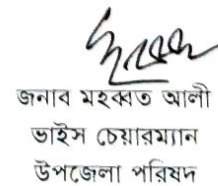 জনাব মহব্বত আলী
ভাইস চেয়ারম্যান
উপজেলা পরিষদ